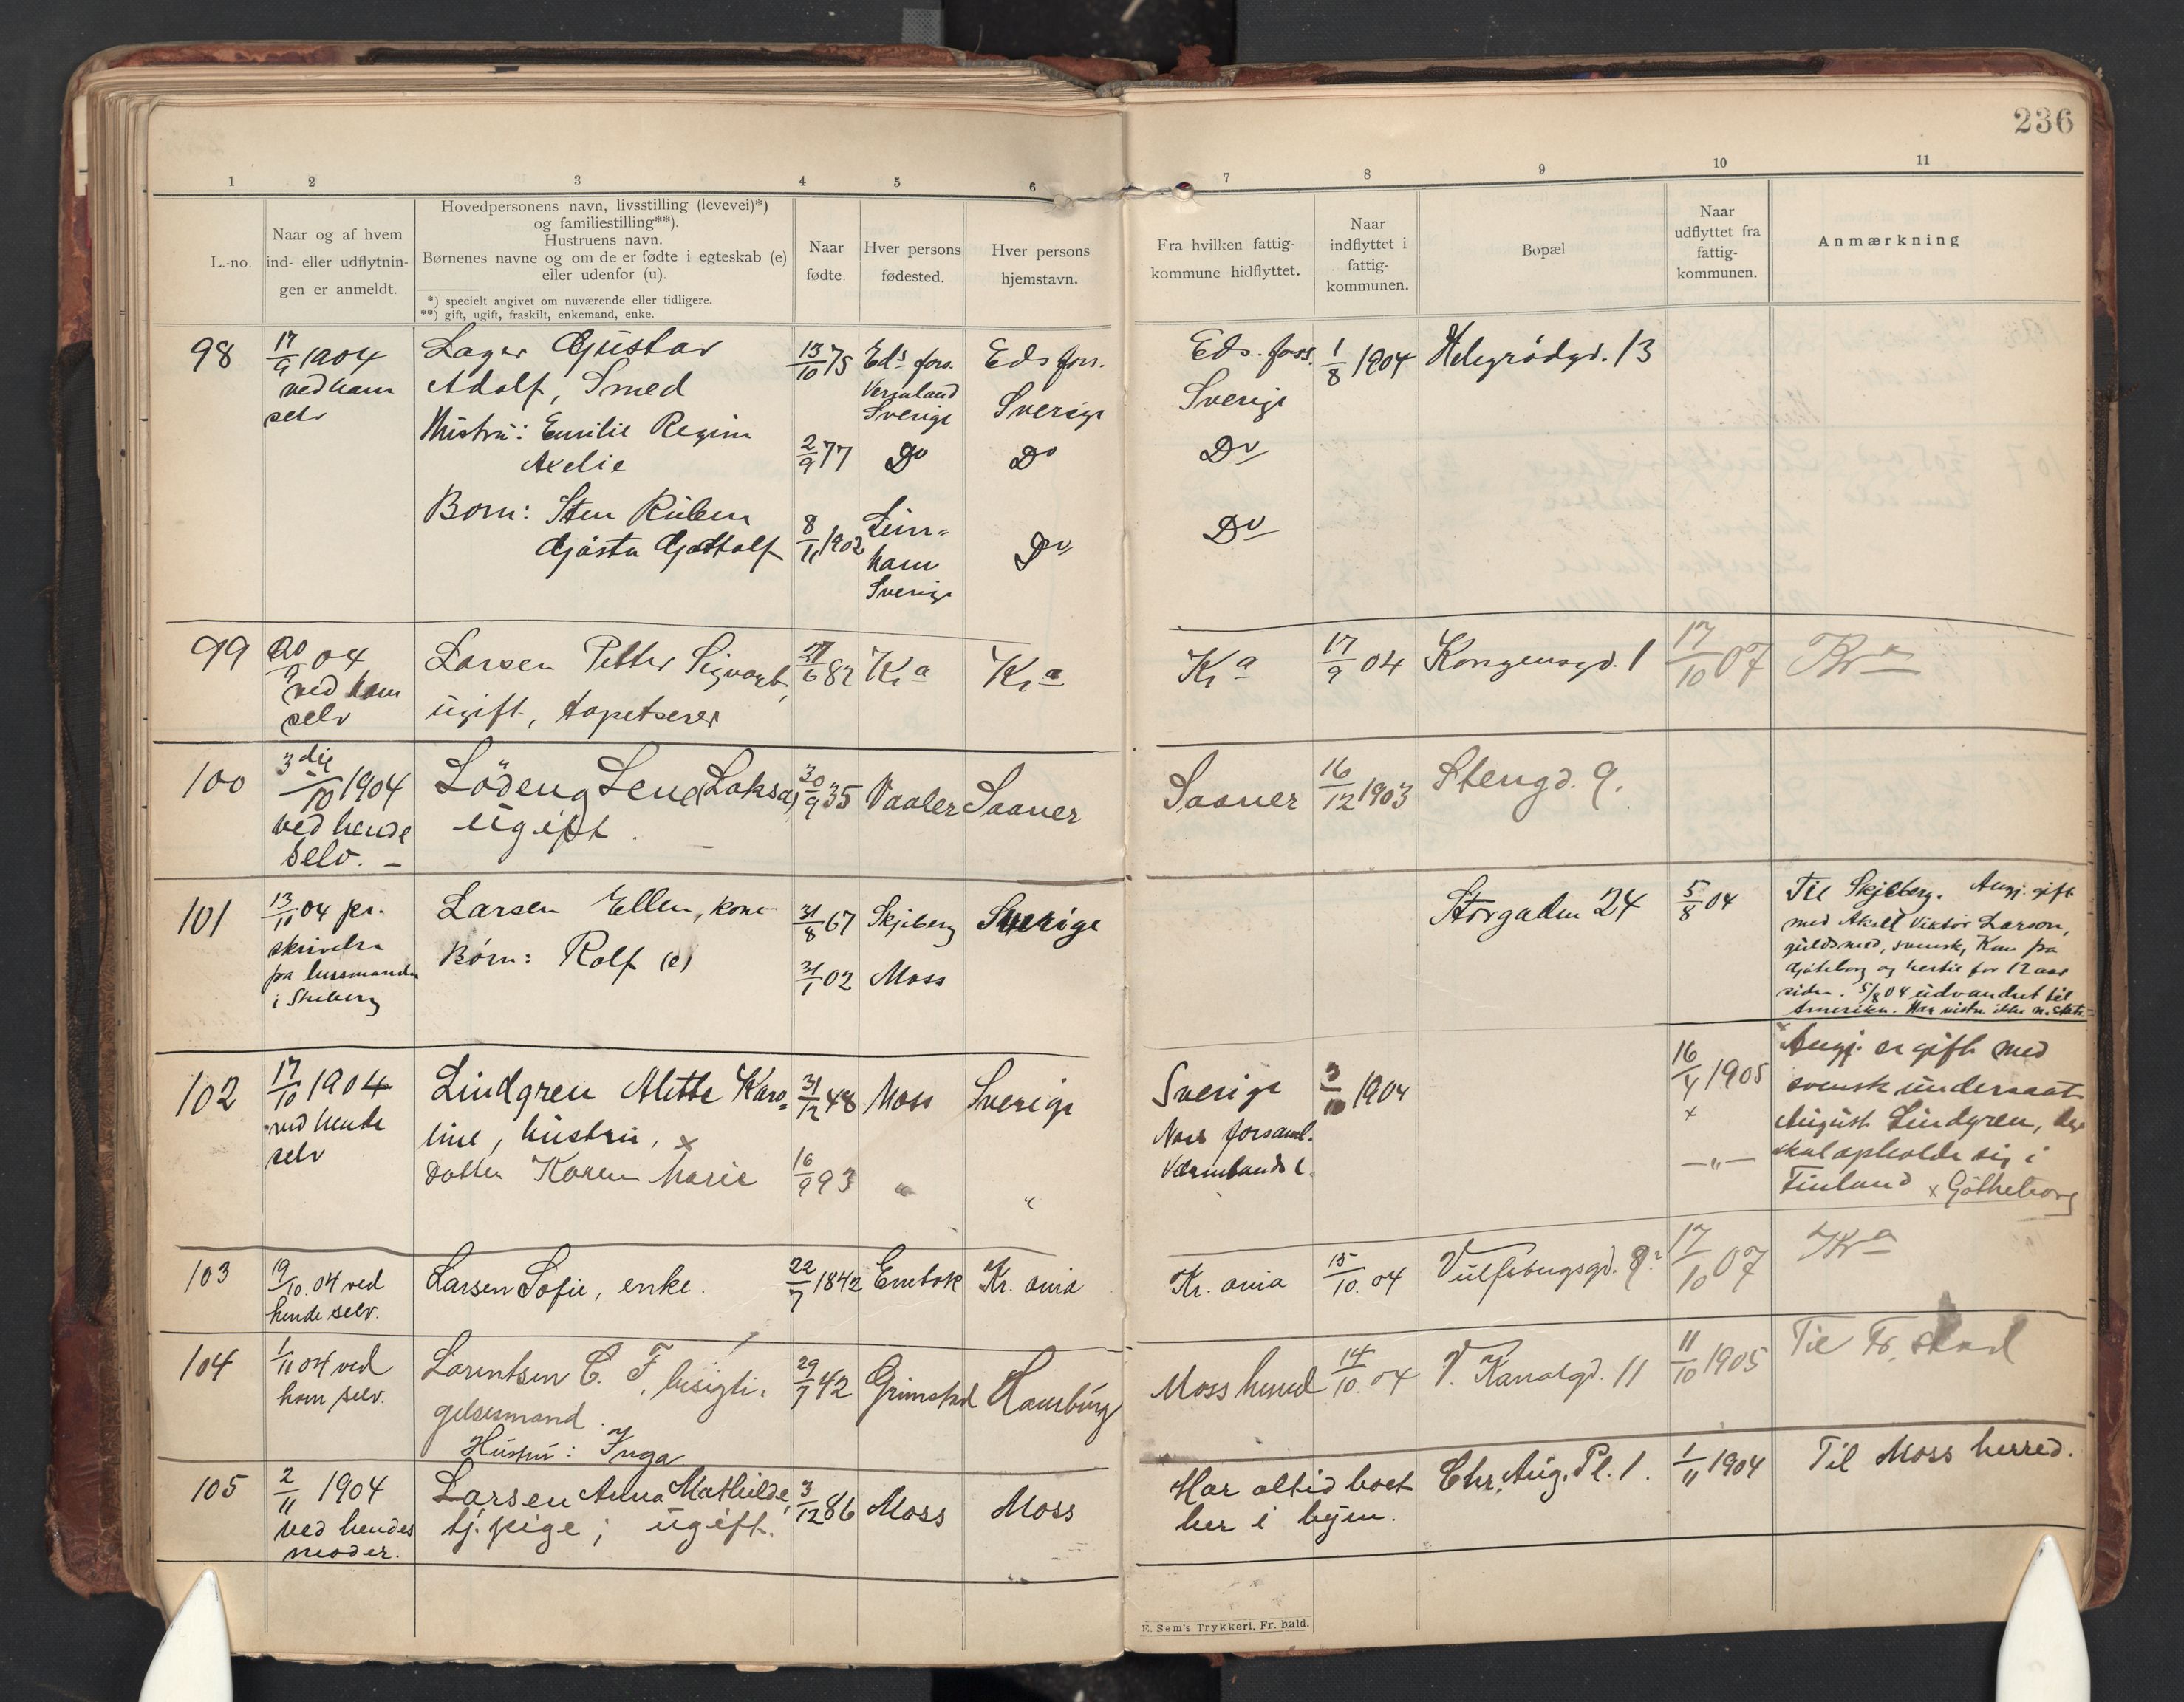 236
1 2 3 4 5 6 7 8 9 10 11
L.-no.
Naar og af hvem
ind- eller udflytnin-
gen er anmeldt.
Hovedpersonens navn, livsstilling (levevei)*)
og familiestilling**).
Hustruens navn.
Børnenes navne og om de er fødte i egteskab (e)
eller udenfor (u).
*) specielt angivet om nuværende eller tidligere.
**) gift, ugift, fraskilt, enkemand, enke.
Naar
fødte.
Hver persons
fødested.
Hver persons
hjemstavn.
Fra hvilken fattig-
kommune hidflyttet.
Naar
indflyttet i
fattig-
kommunen.
Bopæl
Naar
udflyttet fra
fattig-
kommunen.
Anmærkning
98
17/9 1904
ved ham
selv
Lager Gustav
Adolf, Smed
Hustru: Emilie Regina
Axelie
Born: Sten Ruben
Gösta Gottolf
13/10 75
2/9 77
8/11 1902
Eds fors.
Vermland
Sverige
Do
Lim=
ham
Sverige
Eds fors.
Sverige
Do
Do
Eds. foss.
Sverige
Do
Do
1/8 1904
Helgrødgd. 13
99
20/9 04
ved ham
selv
Larsen Petter Sigvart,
ugift, tapetserer
27/6 82
Kra
Kra
Kra
17/9 04
Kongensgd. 1
17/10 07
Kra
100
3die/10 1904
ved hende
selv. –
Lödeng Lene (Laksa)
ugift.
30/9 35
Vaaler
Saaner
Saaner
16/12 1903
Stengd. 9.
101
13/10 04 pr.
skrivelse
fra lensmanden
i Skeberg
Larsen Ellen, kone
Børn: Rolf (e)
31/8 67
31/1 02
Skjeberg
Moss
Sverige
Storgaden 24
5/8 04
Til Skjeberg. Angj. gift
med Aksel Viktor Larson,
guldsmed, svensk, Kom fra
Göteborg og hertil for 12 aar
siden. 5/8 04 udvandret til
Amerika. Har vistn. ikke n. stats-
102
17/10 1904
ved hende
selv
Lindgren Alette Karo=
line, hustru, x
Datter Karen Marie
31/12 48
16/9 93
Moss
"
Sverige
"
Sverige
Nors forsaml.
Värmlands l.
3/10 1904
16/4 1905
x
—"—
x Angj. er gift med
svensk undersaat
August Lindgren, der
skal opholde sig i
Finland x Götheborg
103
19/10. 04 ved
hende selv.
Larsen Sofie, enke.
22/7 1842
Enebak
Kr. ania
Kr. ania
15/10. 04
Vulfsbergsgd. 9
17/10 07
Kra
104
1/11 04 ved
ham selv.
Lorentsen C. F., besigti-
gelsesmand.
Hustru: Inga
29/7 42
Grimstad
Hamburg
Moss herred
14/10. 04
V. Kanalgd. 11
11/10 1905
Til Fr. stad
105
2/11 1904
ved hendes
moder.
Larsen Anna Mathilde,
tj. pige; ugift.
3/12 86
Moss
Moss
Har altid boet
her i byen.
Chr. Aug. Pl. 1.
1/11 1904
Til Moss herred.
E. Sem's Trykkeri, Fr. hald.